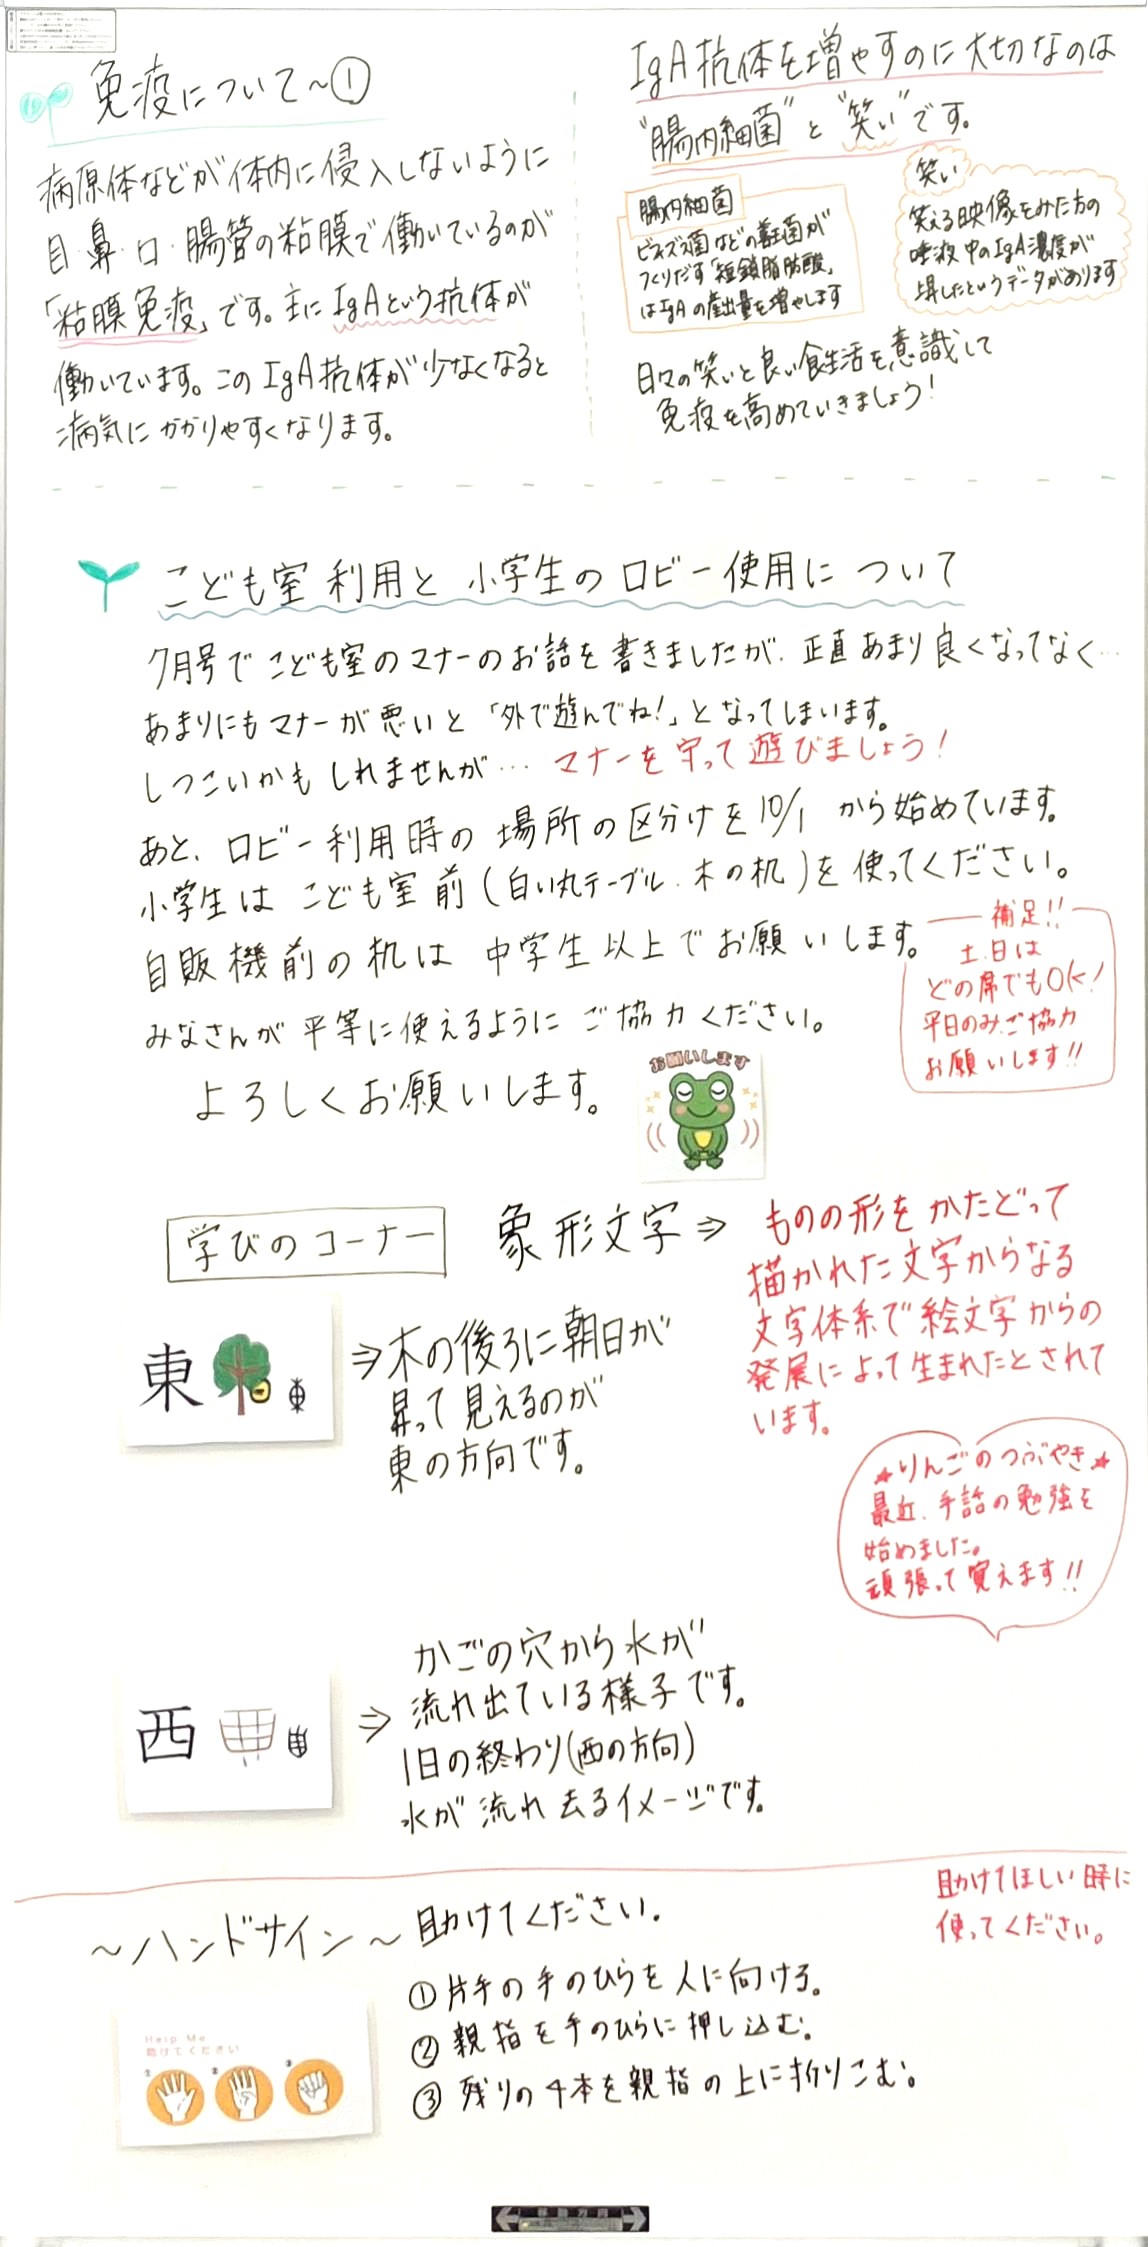 免疫について~①
病原体などが体内に侵入しないように
目・鼻・口・腸管の粘膜で働いているのが
「粘膜免疫」です。主にIgAという抗体が
働いています。このIgA抗体が少なくなると
病気にかかりやすくなります。
IgA抗体を増やすのに大切なのは
"腸内細菌"と"笑い"です。
腸内細菌
ビフィズス菌などの善玉菌が
つくりだす「短鎖脂肪酸」
はIgAの産出量を増やします
笑い
笑える映像をみた方の
唾液中のIgA濃度が
上昇したというデータがあります
日々の笑いと良い食生活を意識して
免疫を高めていきましょう!
こども室利用と小学生のロビー使用について
7月号でこども室のマナーのお話を書きましたが、正直あまり良くなってなく…
あまりにもマナーが悪いと「外で遊んでね!」となってしまいます。
しつこいかもしれませんが… マナーを守って遊びましょう!
あと、ロビー利用時の場所の区分けを10/1から始めています。
小学生はこども室前(白い丸テーブル、木の机)を使ってください。
自販機前の机は中学生以上でお願いします。
みなさんが平等に使えるようにご協力ください。
よろしくお願いします。
補足!!
土、日は
どの席でもOK!
平日のみ、ご協力
お願いします!!
お願いします
学びのコーナー
象形文字⇒
ものの形をかたどって
描かれた文字からなる
文字体系で絵文字からの
発展によって生まれたとされて
います。
東
⇒木の後ろに朝日が
昇って見えるのが
東の方向です。
★りんごのつぶやき★
最近、手話の勉強を
始めました。
頑張って覚えます!!
西
⇒
かごの穴から水が
流れ出ている様子です。
1日の終わり(西の方向)
水が流れ去るイメージです。
~ハンドサイン~助けてください。
助けてほしい時に
使ってください。
①片手の手のひらを人に向ける。
②親指を手のひらに押し込む。
③残りの4本を親指の上に折りこむ。
Help Me
助けてください
① ② ③